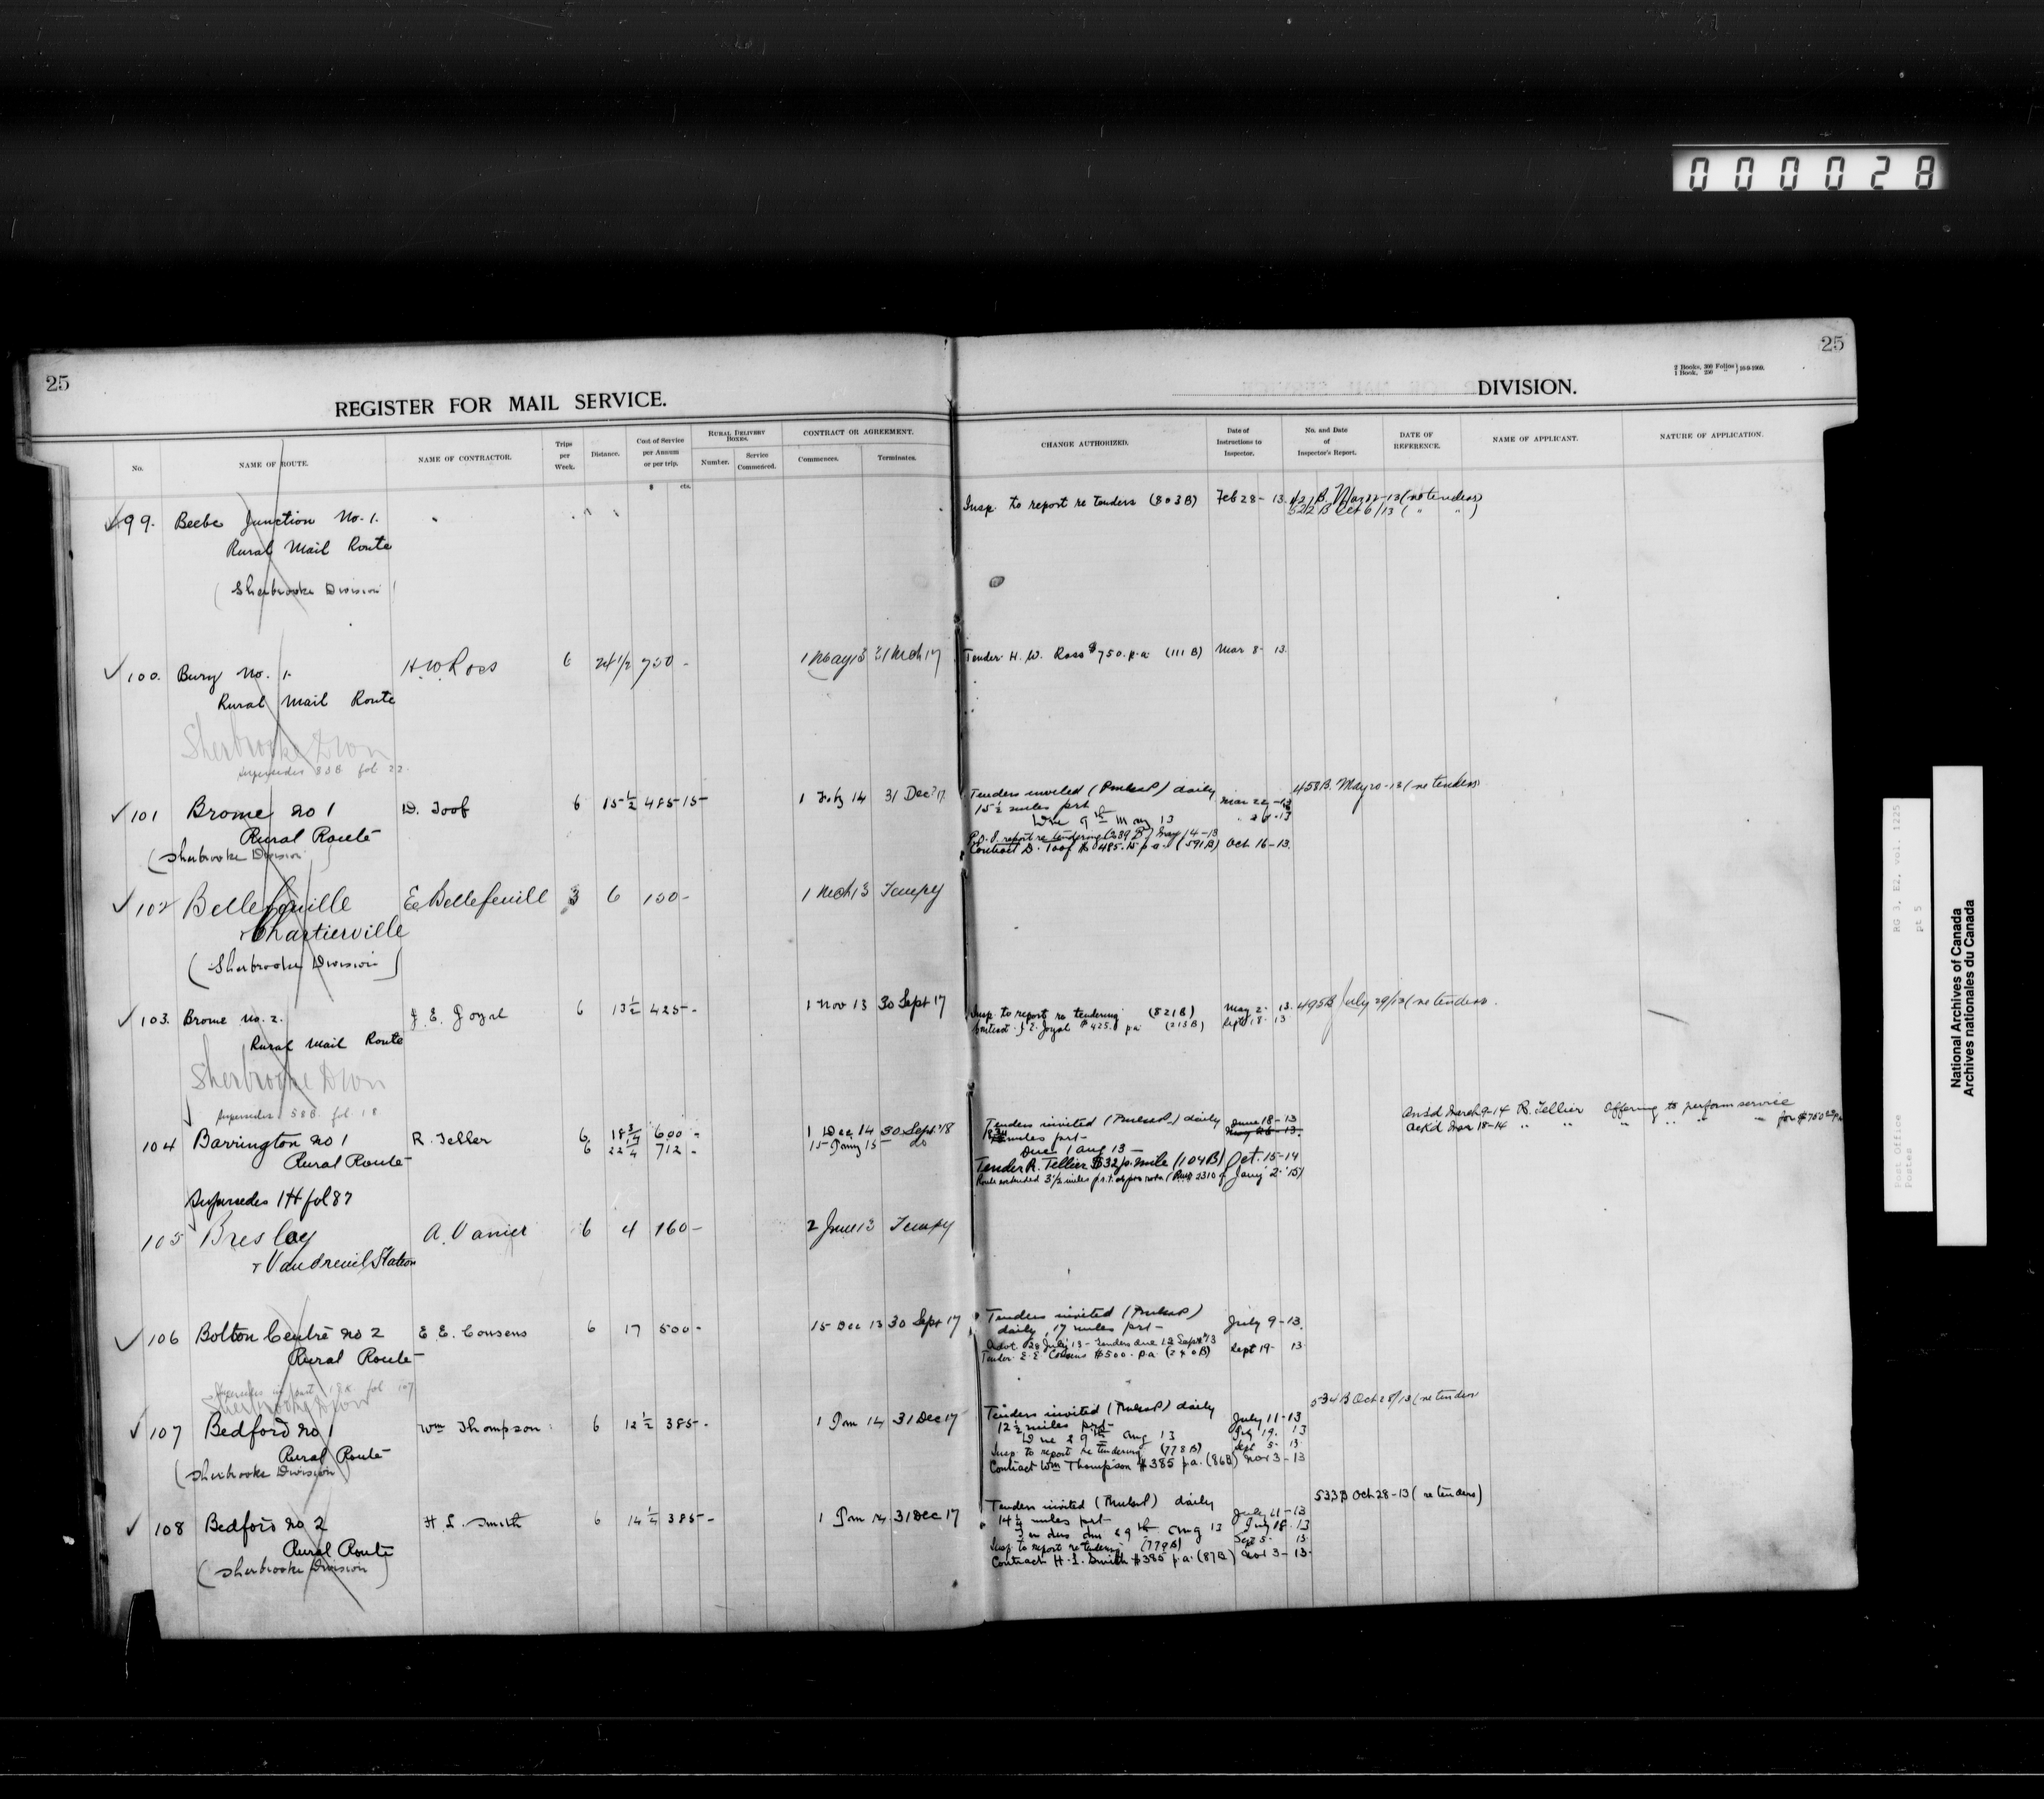 000028
25
REGISTER FOR MAIL SERVICE.
25
2 Books, 300 Folios
1 Book, 250 " 10-9-1909.
DIVISION.
No.
NAME OF ROUTE.
NAME OF CONTRACTOR.
Trips per Week.
Distance.
Cost of Service per Annum or per trip.
$ cts.
RURAL DELIVERY BOXES.
Number.
Service Commenced.
CONTRACT OR AGREEMENT.
Commences.
Terminates.
CHANGE AUTHORIZED.
Date of Instructions to Inspector.
No. and Date of Inspector's Report.
DATE OF REFERENCE.
NAME OF APPLICANT.
NATURE OF APPLICATION.
99. Beebe Junction No. 1.
Rural Mail Route
(Sherbrooke Division)
Insp. to report re tenders (803B) Feb 28-13. 421B. Mar 22-13 (re tenders)
522B Oct 6/13 ( " " )
100. Bury No. 1. H.W. Ross 6 24 1/2 750 - 1 May 13 31 Mch 17
Rural Mail Route
Tender H. W. Ross $750. p.a. (111 B) Mar 8-13.
Sherbrooke Divn
supersedes 83B fol. 22
101 Brome No 1 D. Toof 6 15 1/2 485 15 1 July 14 31 Dec 17
Rural Route
(Sherbrooke Division)
Tenders invited (Pmlaud) daily
15 1/2 miles prt
Due 9th May 13
Contract D. Toof $485.15 p.a. (591B) Oct 16-13.
458B. May 20-13 (re tenders)
102 Bellefeuille E Bellefeuille 3 6 150 - 1 Mch 13 Tempy
& Chartierville
(Sherbrooke Division)
103. Brome No. 2. J. E. Joyal 6 13 1/2 425 - 1 Nov 13 30 Sept 17
Rural Mail Route
Insp. to report re tendering (821B) May 2-13.
Contract J. E. Joyal $425. pa (215B) Sept 18-13
495B July 29/13 (re tenders)
Sherbrooke Divn
supersedes 58B. fol. 18
104 Barrington No 1 R. Tellier 6 18 3/4 600 - 1 Dec 14 30 Sept 18
Rural Route 6 22 1/4 712 - 15 Jany 15 do
Tenders invited daily June 18-13
miles prt
Due 1 Aug 13
Tender R. Tellier $32 p. mile (104B) Oct. 15-14
Route extended 3 1/2 miles p.r.t. at pro rata Jany 2-'15
Ansd March 9-14 R. Tellier Offering to perform service
Ackd Mar 18-14 " " " " for $750
Supersedes 1H fol 87
105 Breslay A. Vanier 6 4 160 - 2 June 13 Tempy
& Vaudreuil Station
106 Bolton Centre No 2 E. E. Cousens 6 17 500 - 15 Dec 13 30 Sept 17
Rural Route
Tenders invited
daily, 17 miles prt - July 9-13.
Advt. 28 July 13 - Tenders due 12 Sept 13
Tender E. E. Cousens $500. pa (240B) Sept 19-13
Supersedes in part 18X fol 107
Sherbrooke Divn
107 Bedford No 1 Wm Thompson 6 12 1/2 385 - 1 Jan 14 31 Dec 17
Rural Route
(Sherbrooke Division)
Tenders invited daily
12 1/2 miles prt July 11-13
Due 29th Aug 13 July 19. 13
Insp. to report re tendering (778B) Sept 5-13
Contract Wm Thompson $385 p.a. (86B) Nov 3-13
534B Oct 28/13 (re tenders
108 Bedford No 2 H. L. Smith 6 14 1/4 385 - 1 Jan 14 31 Dec 17
Rural Route
(Sherbrooke Division)
Tenders invited daily
14 1/4 miles prt July 11-13
Tenders due 29th Aug 13 July 18.13
Insp. to report re tendering (779B) Sept 5-13
Contract H. L. Smith $385 p.a. (87B) Nov 3-13.
533B Oct 28-13 (re tenders)
Post Office RG 3, E2, vol. 1225
Postes pt 5
National Archives of Canada
Archives nationales du Canada